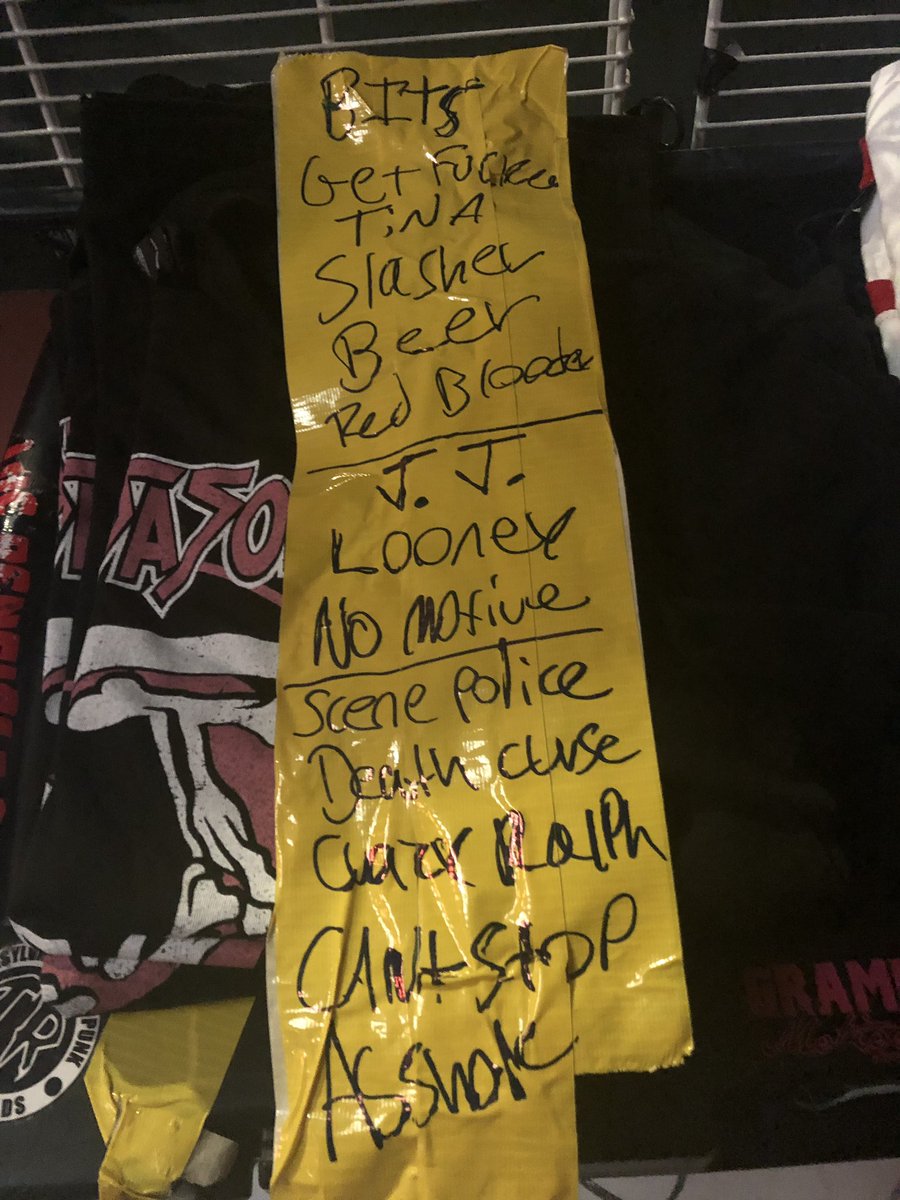 BITS
Get Fucked
TiNA
Slasher
Beer
Red Blooded
J. J.
Looney
No Motive
Scene police
Death curse
Crazy Ralph
CANt STOP
Asshole
PUNK